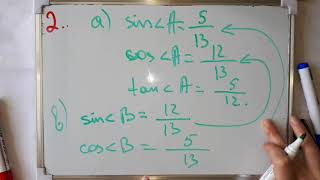 2.. a) sin<A = 5/13
cos<A = 12/13
tan<A = 5/12.
b) sin<B = 12/13
cos<B = 5/13